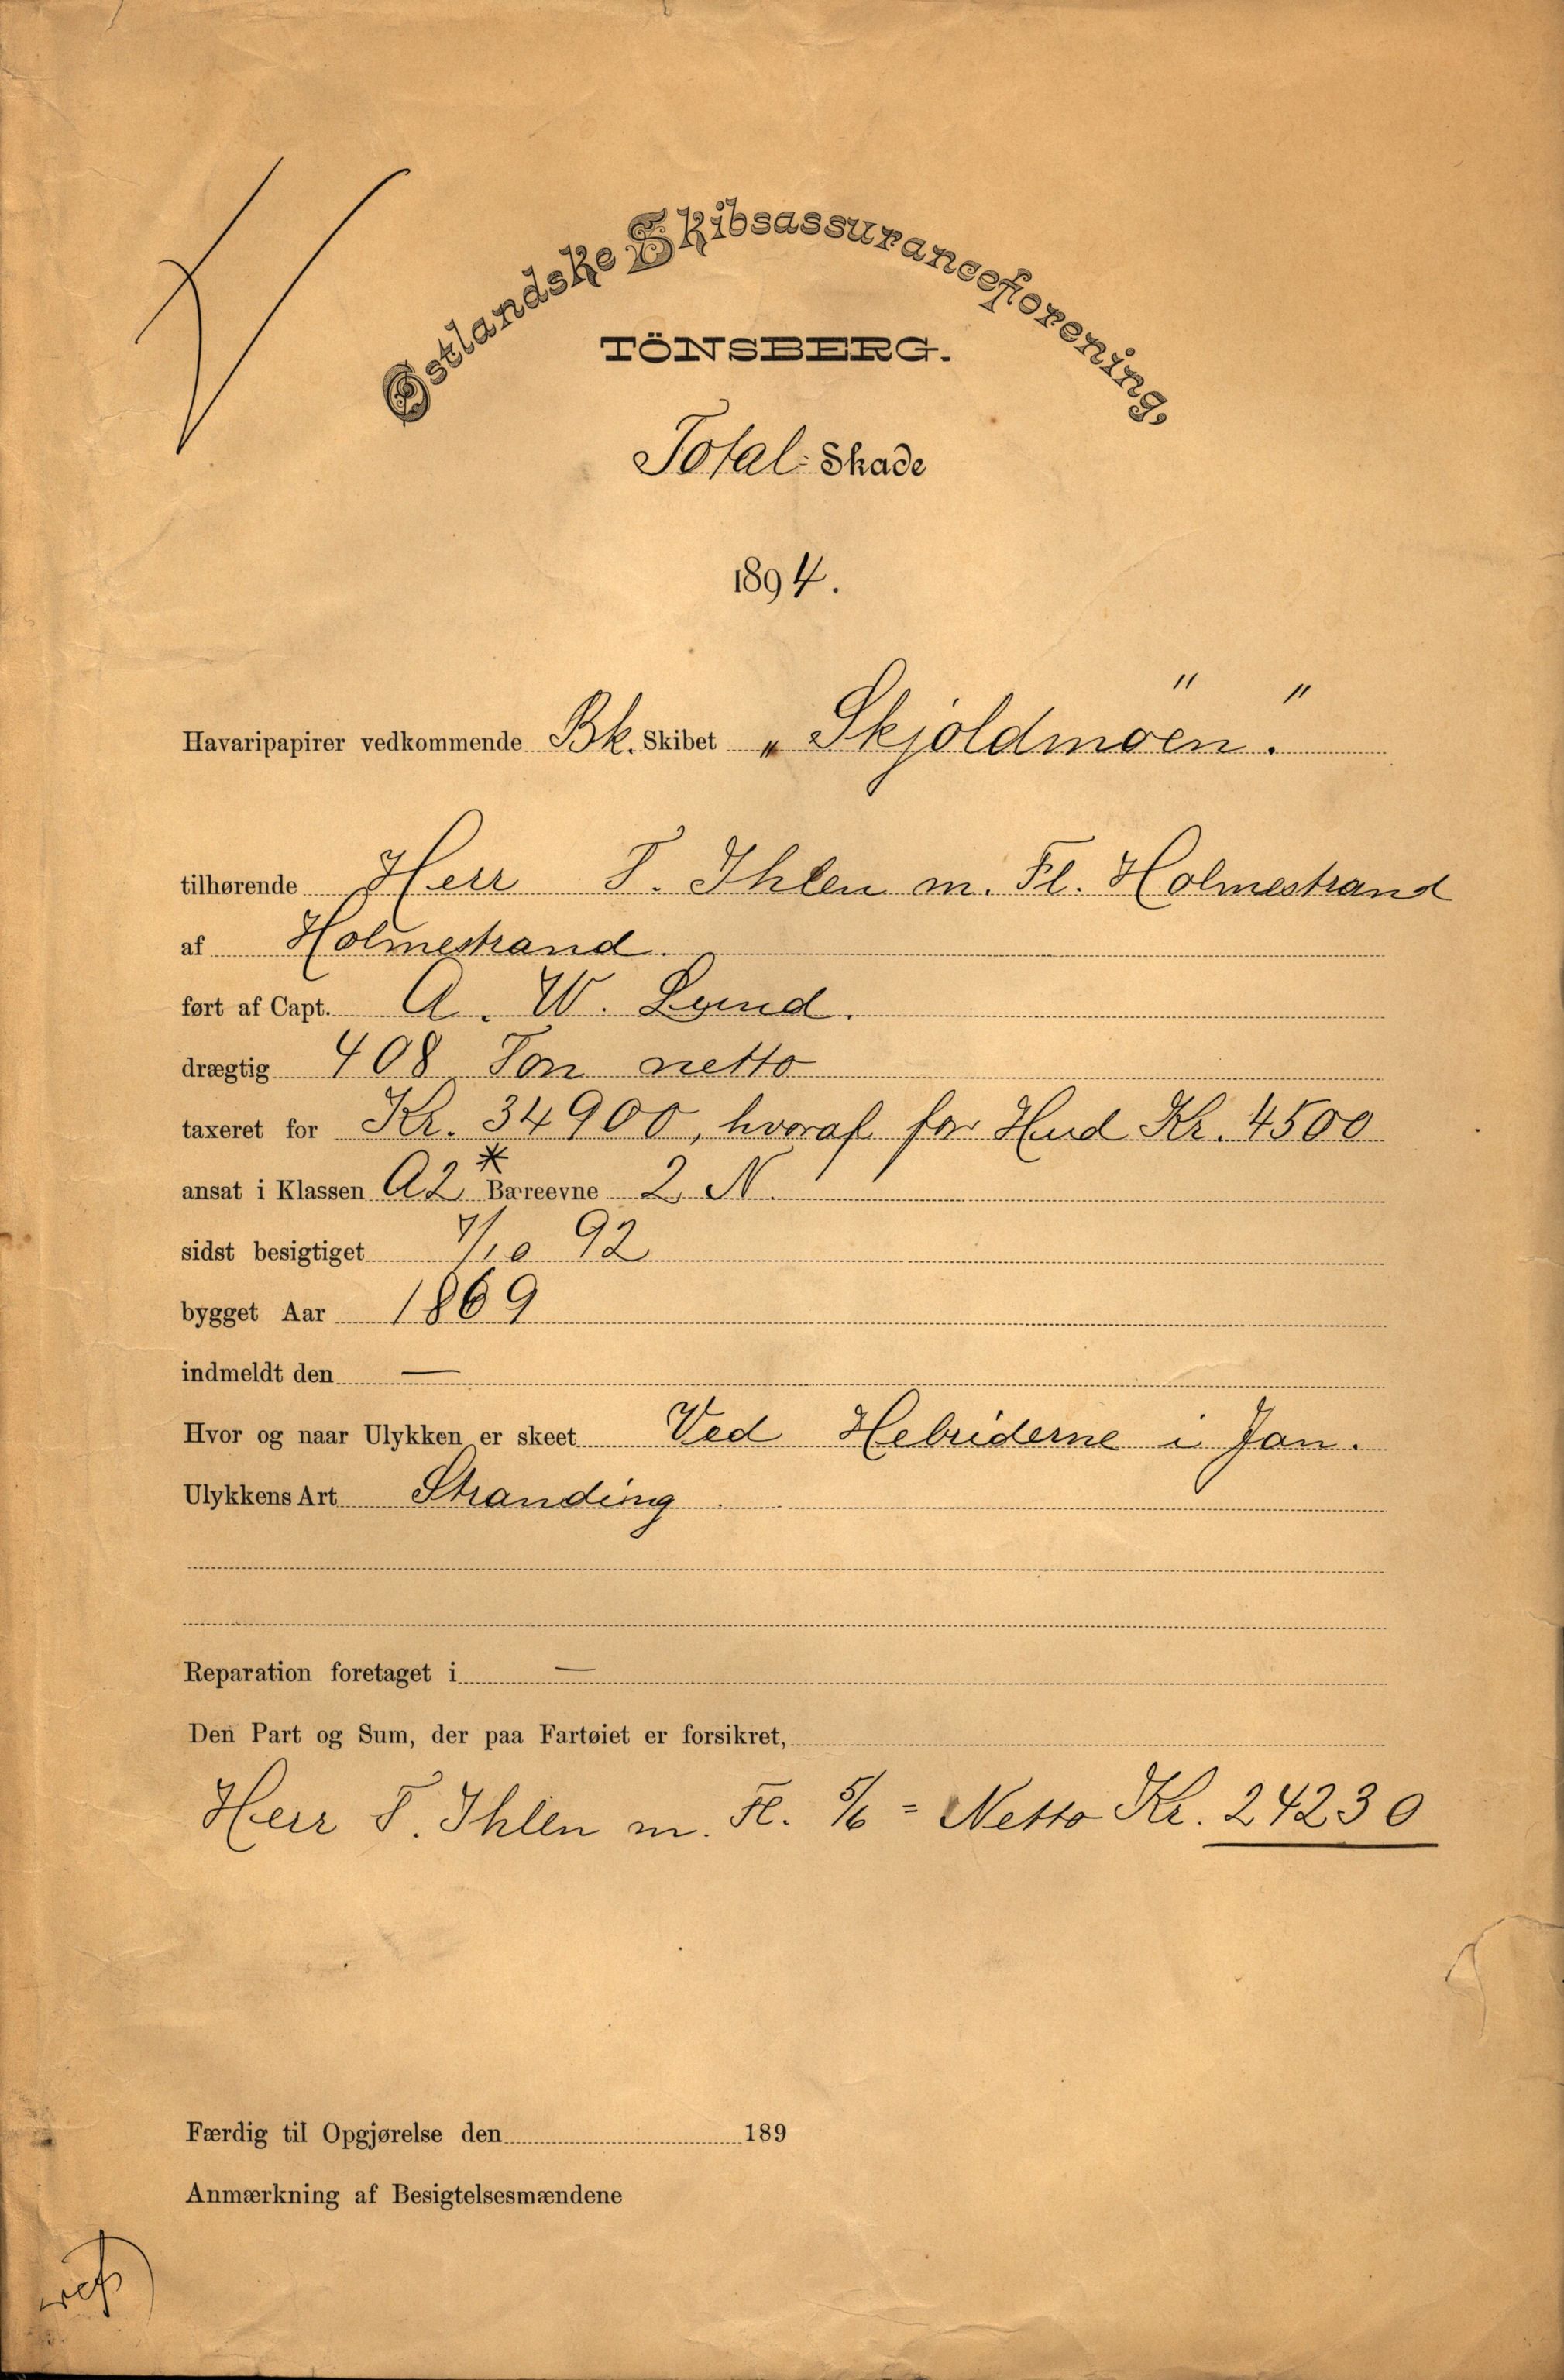 Østlandske Skibsassuranceforening,
TÖNSBERG.
Total-Skade
1894.
Havaripapirer vedkommende Bk. Skibet „Skjoldmöen."
tilhørende Herr T. Ihlen m. Fl. Holmestrand
af Holmestrand.
ført af Capt. A. W. Lund.
drægtig 408 Ton netto
taxeret for Kr. 34900, hvoraf for Hud Kr. 4500
ansat i Klassen A2* Bæreevne 2 N.
sidst besigtiget 7/10 92
bygget Aar 1869
indmeldt den —
Hvor og naar Ulykken er skeet Ved Hebriderne i Jan.
Ulykkens Art Stranding.
Reparation foretaget i —
Den Part og Sum, der paa Fartøiet er forsikret,
Herr T. Ihlen m. Fl. 5/6 = Netto Kr. 24230
Færdig til Opgjørelse den 189
Anmærkning af Besigtelsesmændene